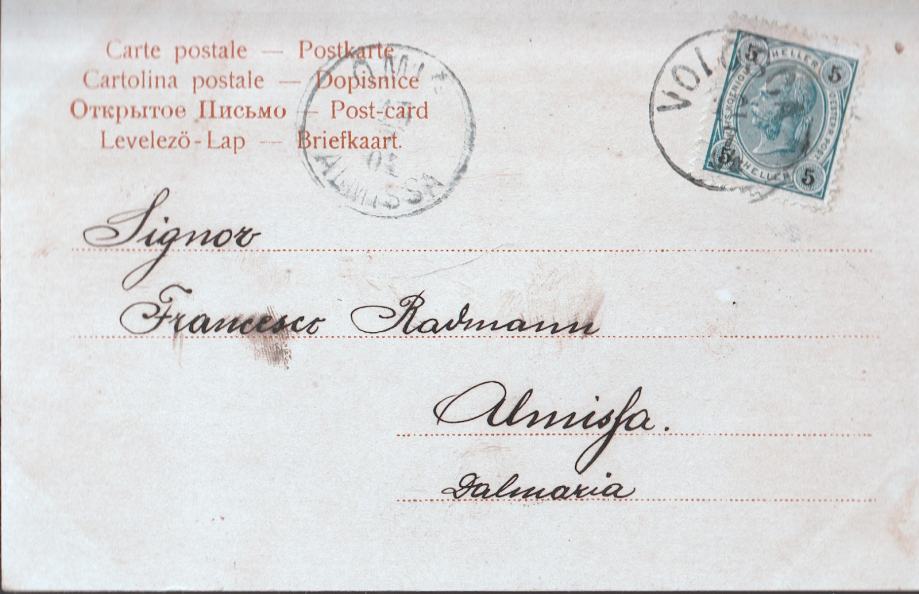 Carte postale — Postkarte
Cartolina postale — Dopisnice
Открытое Письмо — Post-card
Levelező-Lap — Briefkaart.
OMIŠ
04
ALMISSA
VOLOSCA
5 HELLER 5
5 HELLER 5
Signor
Francesco Radmann
Almissa.
Dalmazia